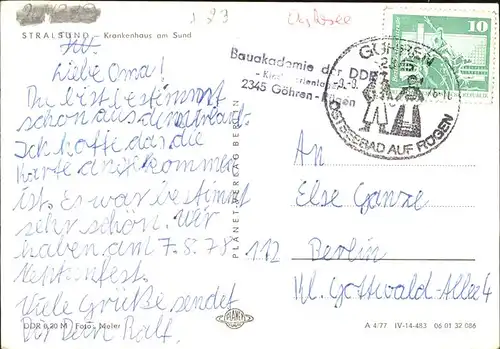 STRALSUND Krankenhaus am Sund
Liebe Oma!
Du bist bestimmt
schon aus dem Urlaub.
Ich hoffe das die
Karte angekommen
ist. Es war bestimmt
sehr schön. Wir
haben am 7.5.78
Neptunfest.
Viele Grüße sendet
Dir Dein Ralf.
DDR 0,20 M Foto: Meier
PLANET-VERLAG BERLIN
PLANET
Bauakademie der DDR
2345 Göhren-Rügen
GÖHREN
OSTSEEBAD AUF RÜGEN
10
An
Else Ganze
112 Berlin
Kl. Gottwald-Allee 4
A 4/77 IV-14-483 06 01 32 086